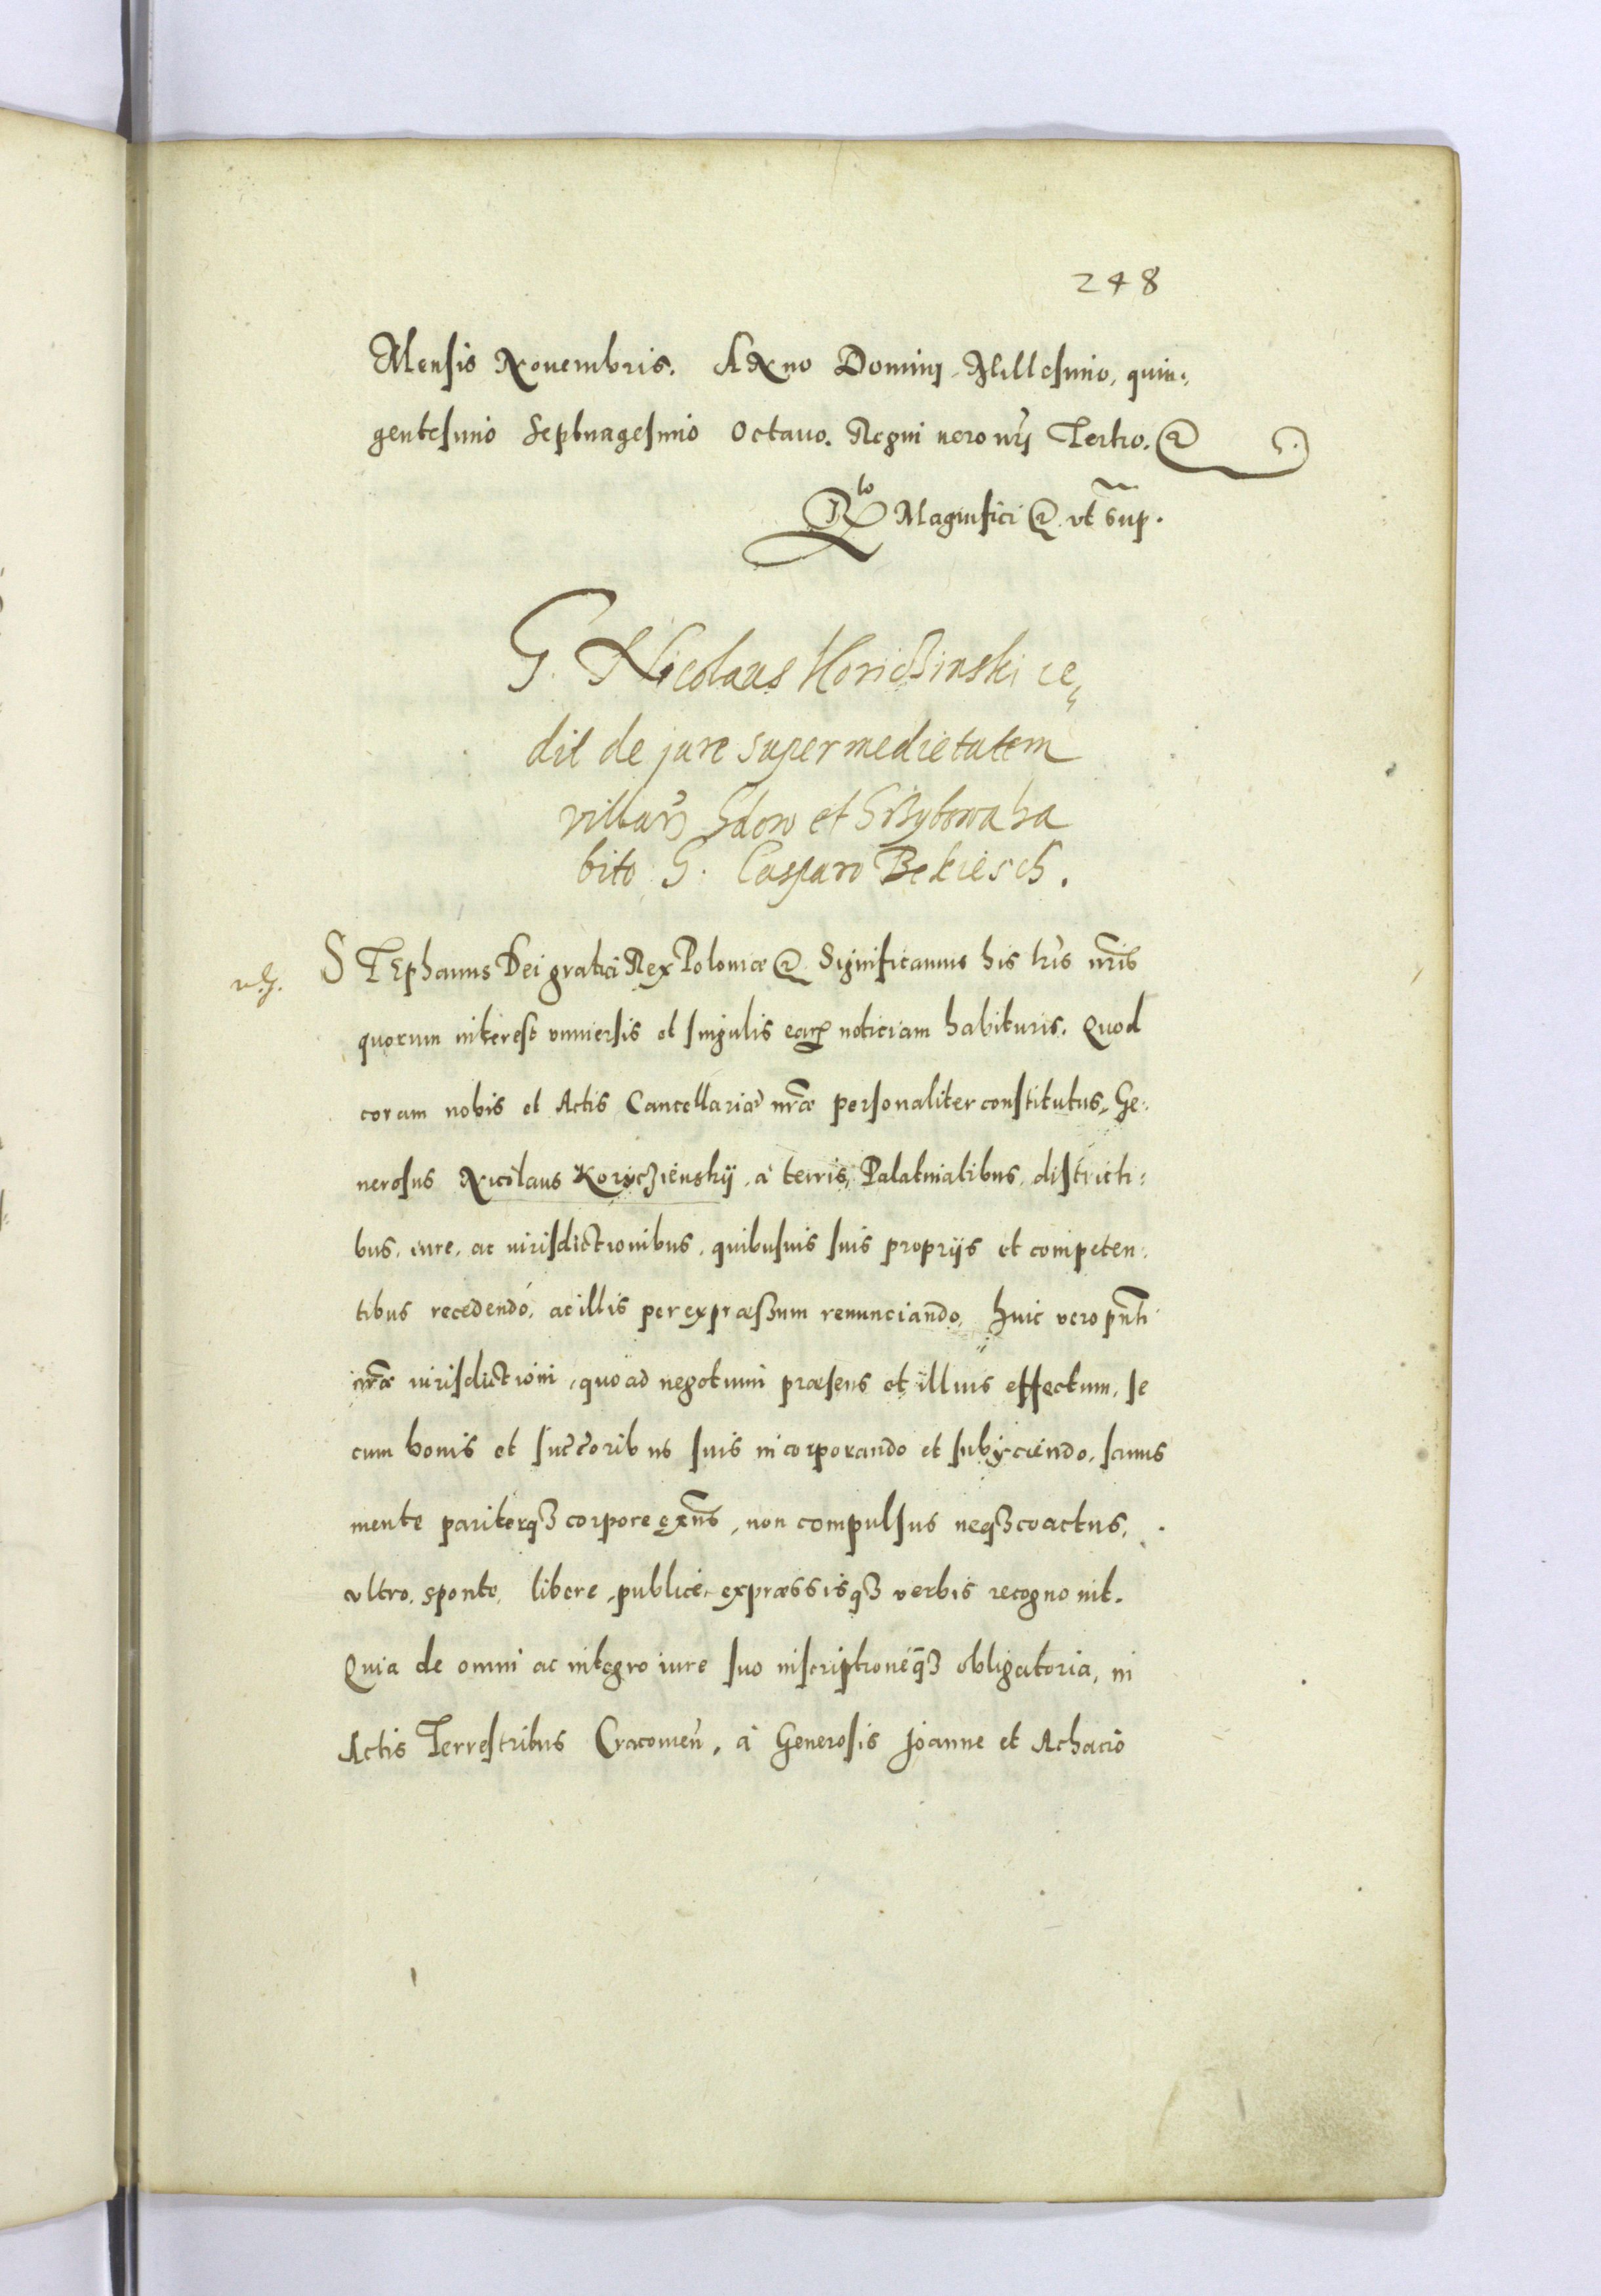 248
Mensis Nouembris. Anno Dominj Millesimo, quin:
gentesimo Septuagesimo Octauo. Regni uero nr̃j Tertio. &
Rlo Magnifici & vt sup.
G. Nicolaus Koriczinski ce„
dit de jure super medietatem
villarũ Gdow et Grzybowa ha
bito G. Casparo Bekiesch.
STEphanus Dei gratia Rex Poloniæ & Significamus his lrĩs nr̃is
quorum interest vniuersis et singulis earum noticiam habituris. Quod
coram nobis et Actis Cancellariæ nr̃æ personaliter constitutus, Ge:
nerosus Nicolaus Korÿczienskÿ, à terris, Palatinatibus, districti:
bus, iure, ac iurisdictionibus, quibusuis suis proprijs et competen:
tibus recedendo, ac illis per expræssum renunciando, huic vero pñti
nr̃æ iurisdictioni, quo ad negotium præsens et illius effectum, se
cum bonis et succoribus suis incorporando et subÿciendo, sanus
mente pariterqȝ corpore exñs, non compulsus neqȝ coactus,
vltro, sponte, libere, publicè, expræssisqȝ verbis recognouit.
Quia de omni ac integro iure suo inscriptioneqȝ obligatoria, in
Actis Terrestribus Cracouieñ, à Generosis Joanne et Achacio